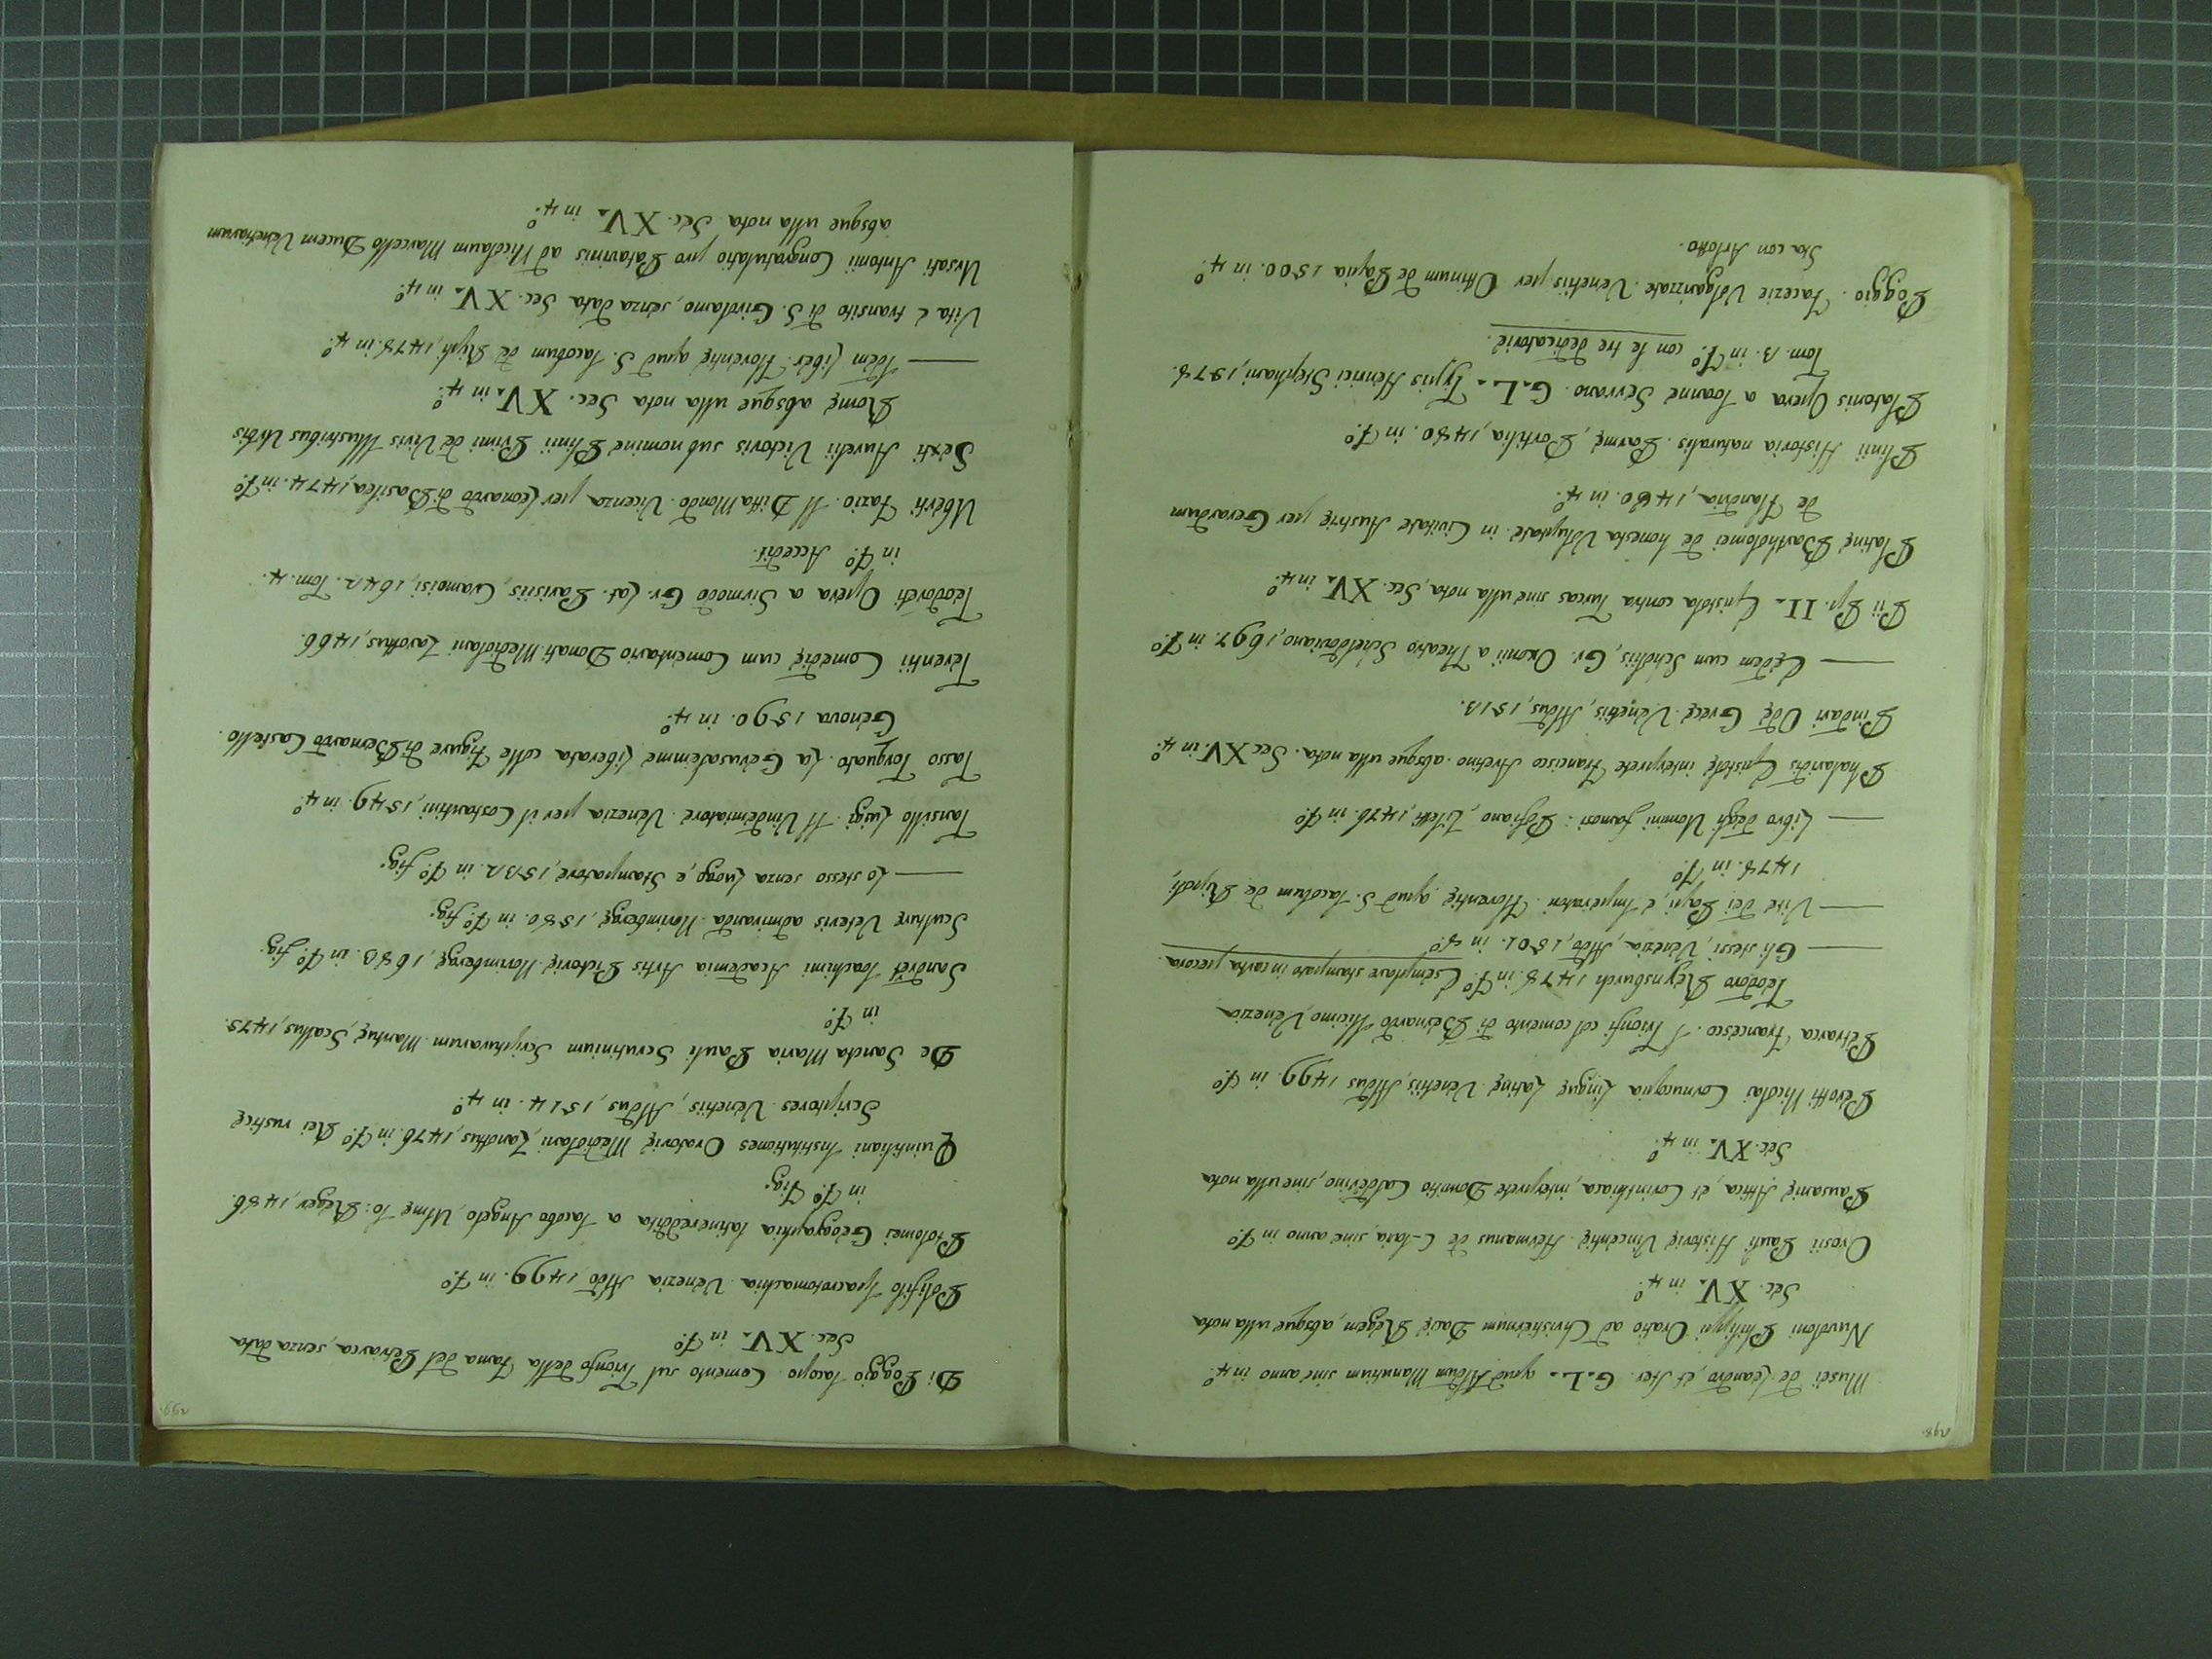 298.
Musei de Leandro, et Her. G.L. apud Aldum Manutium sine anno in 4.º
Nuvoloni Philippi Oratio ad Christiernum Daciȩ Regem, absque ulla nota
Sec. XV. in 4.º
Orosii Pauli Historiȩ Vincentiȩ Hermanus de C-laia, sine anno in Fº.
Pausaniȩ Attica, et, Corinthiaca, interprete Domitio Calderino, sine ulla nota
Sec. XV. in 4.º
Perotti Nicolai Cornucopia Linguȩ Latinȩ Venetiis, Aldus 1499. in Fº.
Petrarca Francesco. I Trionfi col comento di Bernardo Ilicino, Venezia
Teodoro Reynsburch 1478. in Fº. Esemplare stampato in carta pecora.
—— Gli stessi, Venezia, Aldo, 1501. in 8º.
—— Vite dei Papi, e Imperatori. Florentiȩ apud S. Jacobum de Ripoli,
1478. in Fº.
—— Libro degli Uomini famosi: Pogliano, Zilett, 1476. in Fº.
Phalaridis Epistolȩ interprete Francisco Aretino. absque ulla nota. Sec XV. in 4.º
Pindari Odȩ Grecȩ. Venȩtiis, Aldus, 1513.
—— Eȩdem cum Scholiis, Gr. Oxonii a Theatro Scheldoviano, 1697. in Fº.
Pii Pp. II. Epistola contra Turcas sine ulla nota, Sec. XV. in 4.º
Platinȩ Bartholomei de honesta Voluptate in Civitate Austriȩ per Gerardum
de Flandria, 1480. in 4.º
Plinii Historia naturalis. Parmȩ, Portilia, 1480. in Fº.
Platonis Opera a Joanne Serrano. G.L. Typis Henrici Stephani, 1578.
Tom. 3. in Fº. con le tre dedicatorie.
Poggio. Facezie Volgarizzate. Venetiis per Ottinum de Papia 1500. in 4.º
Sta con Arlotto.
299.
Di Poggio Jacopo. Comento sul Trionfo della Fama del Petrarca, senza data
Sec. XV. in Fº.
Polifilo Ipnerotomachia Venezia Aldo, 1499. in Fº.
Ptolomei Geographia latine reddita a Jacobo Angelo, Ulmȩ Jo: Reger, 1486.
in Fº. Fig:
Quintiliani Institutiones Oratoriȩ Mediolani, Zarothus, 1476. in Fº. Rei rusticȩ
Scriptores Venetiis, Aldus, 1514. in 4.º
De Sancta Maria Pauli Scrutinium Scripturarum Mantuȩ, Scallus, 1475.
in Fº.
Sandret Joachimi Academia Artis Pictoriȩ, Norimbergȩ, 1683. in Fº. fig:
Sculturȩ Veteris admiranda Norimbergȩ, 1680. in Fº. fig:
—— Lo stesso senza Luogo, e, Stampatore, 1532. in Fº. fig:
Tansillo Luigi. Il Vindemiatore. Venezia per il Costantini, 1549. in 4.º
Tasso Torquato. La Gerusalemme Liberata colle Figure di Bernardo Castello.
Genova 1590. in 4.º
Terentii Comediȩ cum Comentario Donati. Mediolani Zarothus, 1466.
Teodoreti Opera a Sirmodo Gr. Lat. Parisiis, Cramoisi, 1642. Tom. 4.
in Fº. Accedit.
Uberti Fazio. Il Ditta Mondo. Vicenza per Leonardo di Basilea, 1474. in Fº.
Sexti Aurelii Victoris sub nomine Plinii Primi de Viris Illustribus Urbis
Romȩ absque ulla nota Sec. XV. in 4.º
—— Idem liber. Florentiȩ apud S. Jacobum de Ripoli, 1478. in 4.º
Vita e transito di S. Girolamo, senza data Sec. XV. in 4.º
Ursati Antonii Congratulatio pro Patavinis ad Nicolaum Marcello Ducem Venetiarum
absque ulla nota Sec. XV. in 4.º